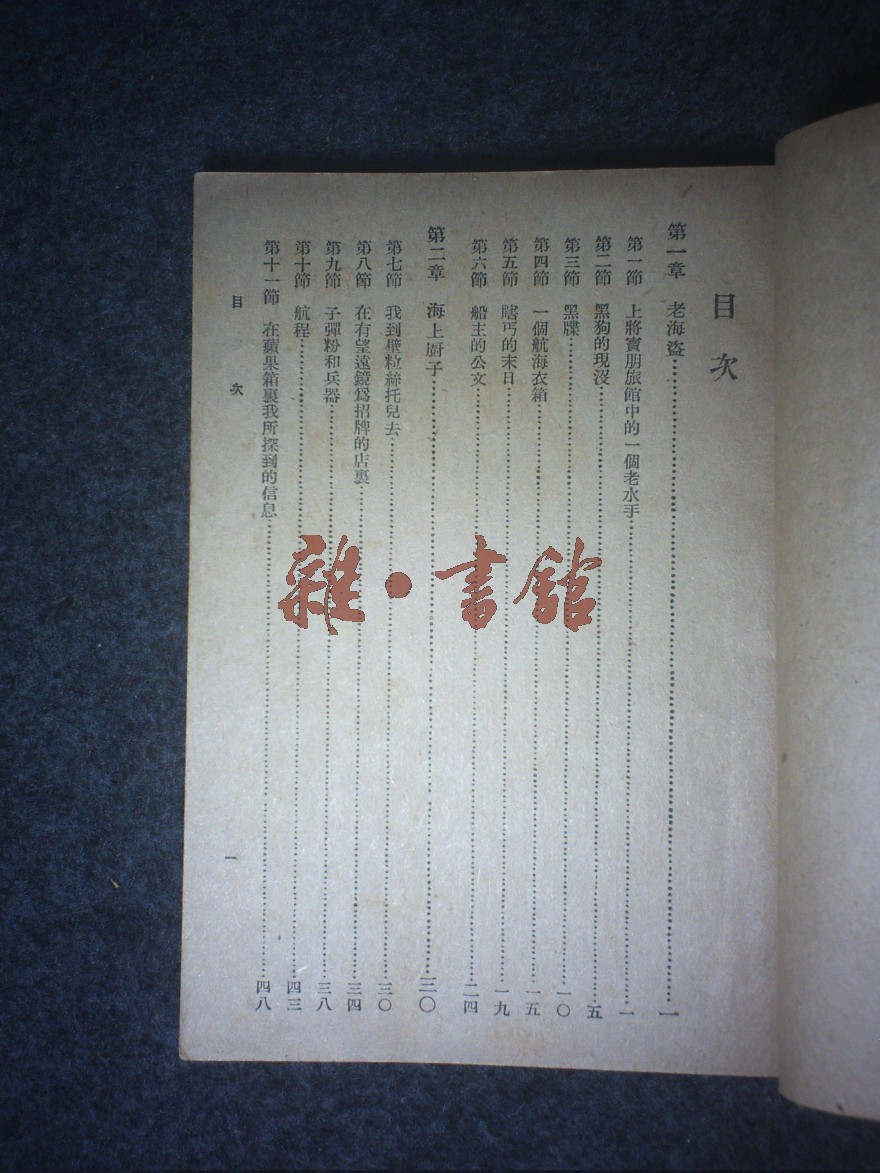 目次
第一章 老海盜 一
第一節 上將賓朋旅館中的一個老水手 一
第二節 黑狗的現沒 五
第三節 黑牒 一〇
第四節 一個航海衣箱 一五
第五節 瞎丐的末日 一九
第六節 船主的公文 二四
第二章 海上厨子 三〇
第七節 我到壁粒絲托兒去 三〇
第八節 在有望遠鏡爲招牌的店裏 三四
第九節 子彈粉和兵器 三八
第十節 航程 四三
第十一節 在蘋果箱裏我所探到的信息 四八
目次 一
雜·書館